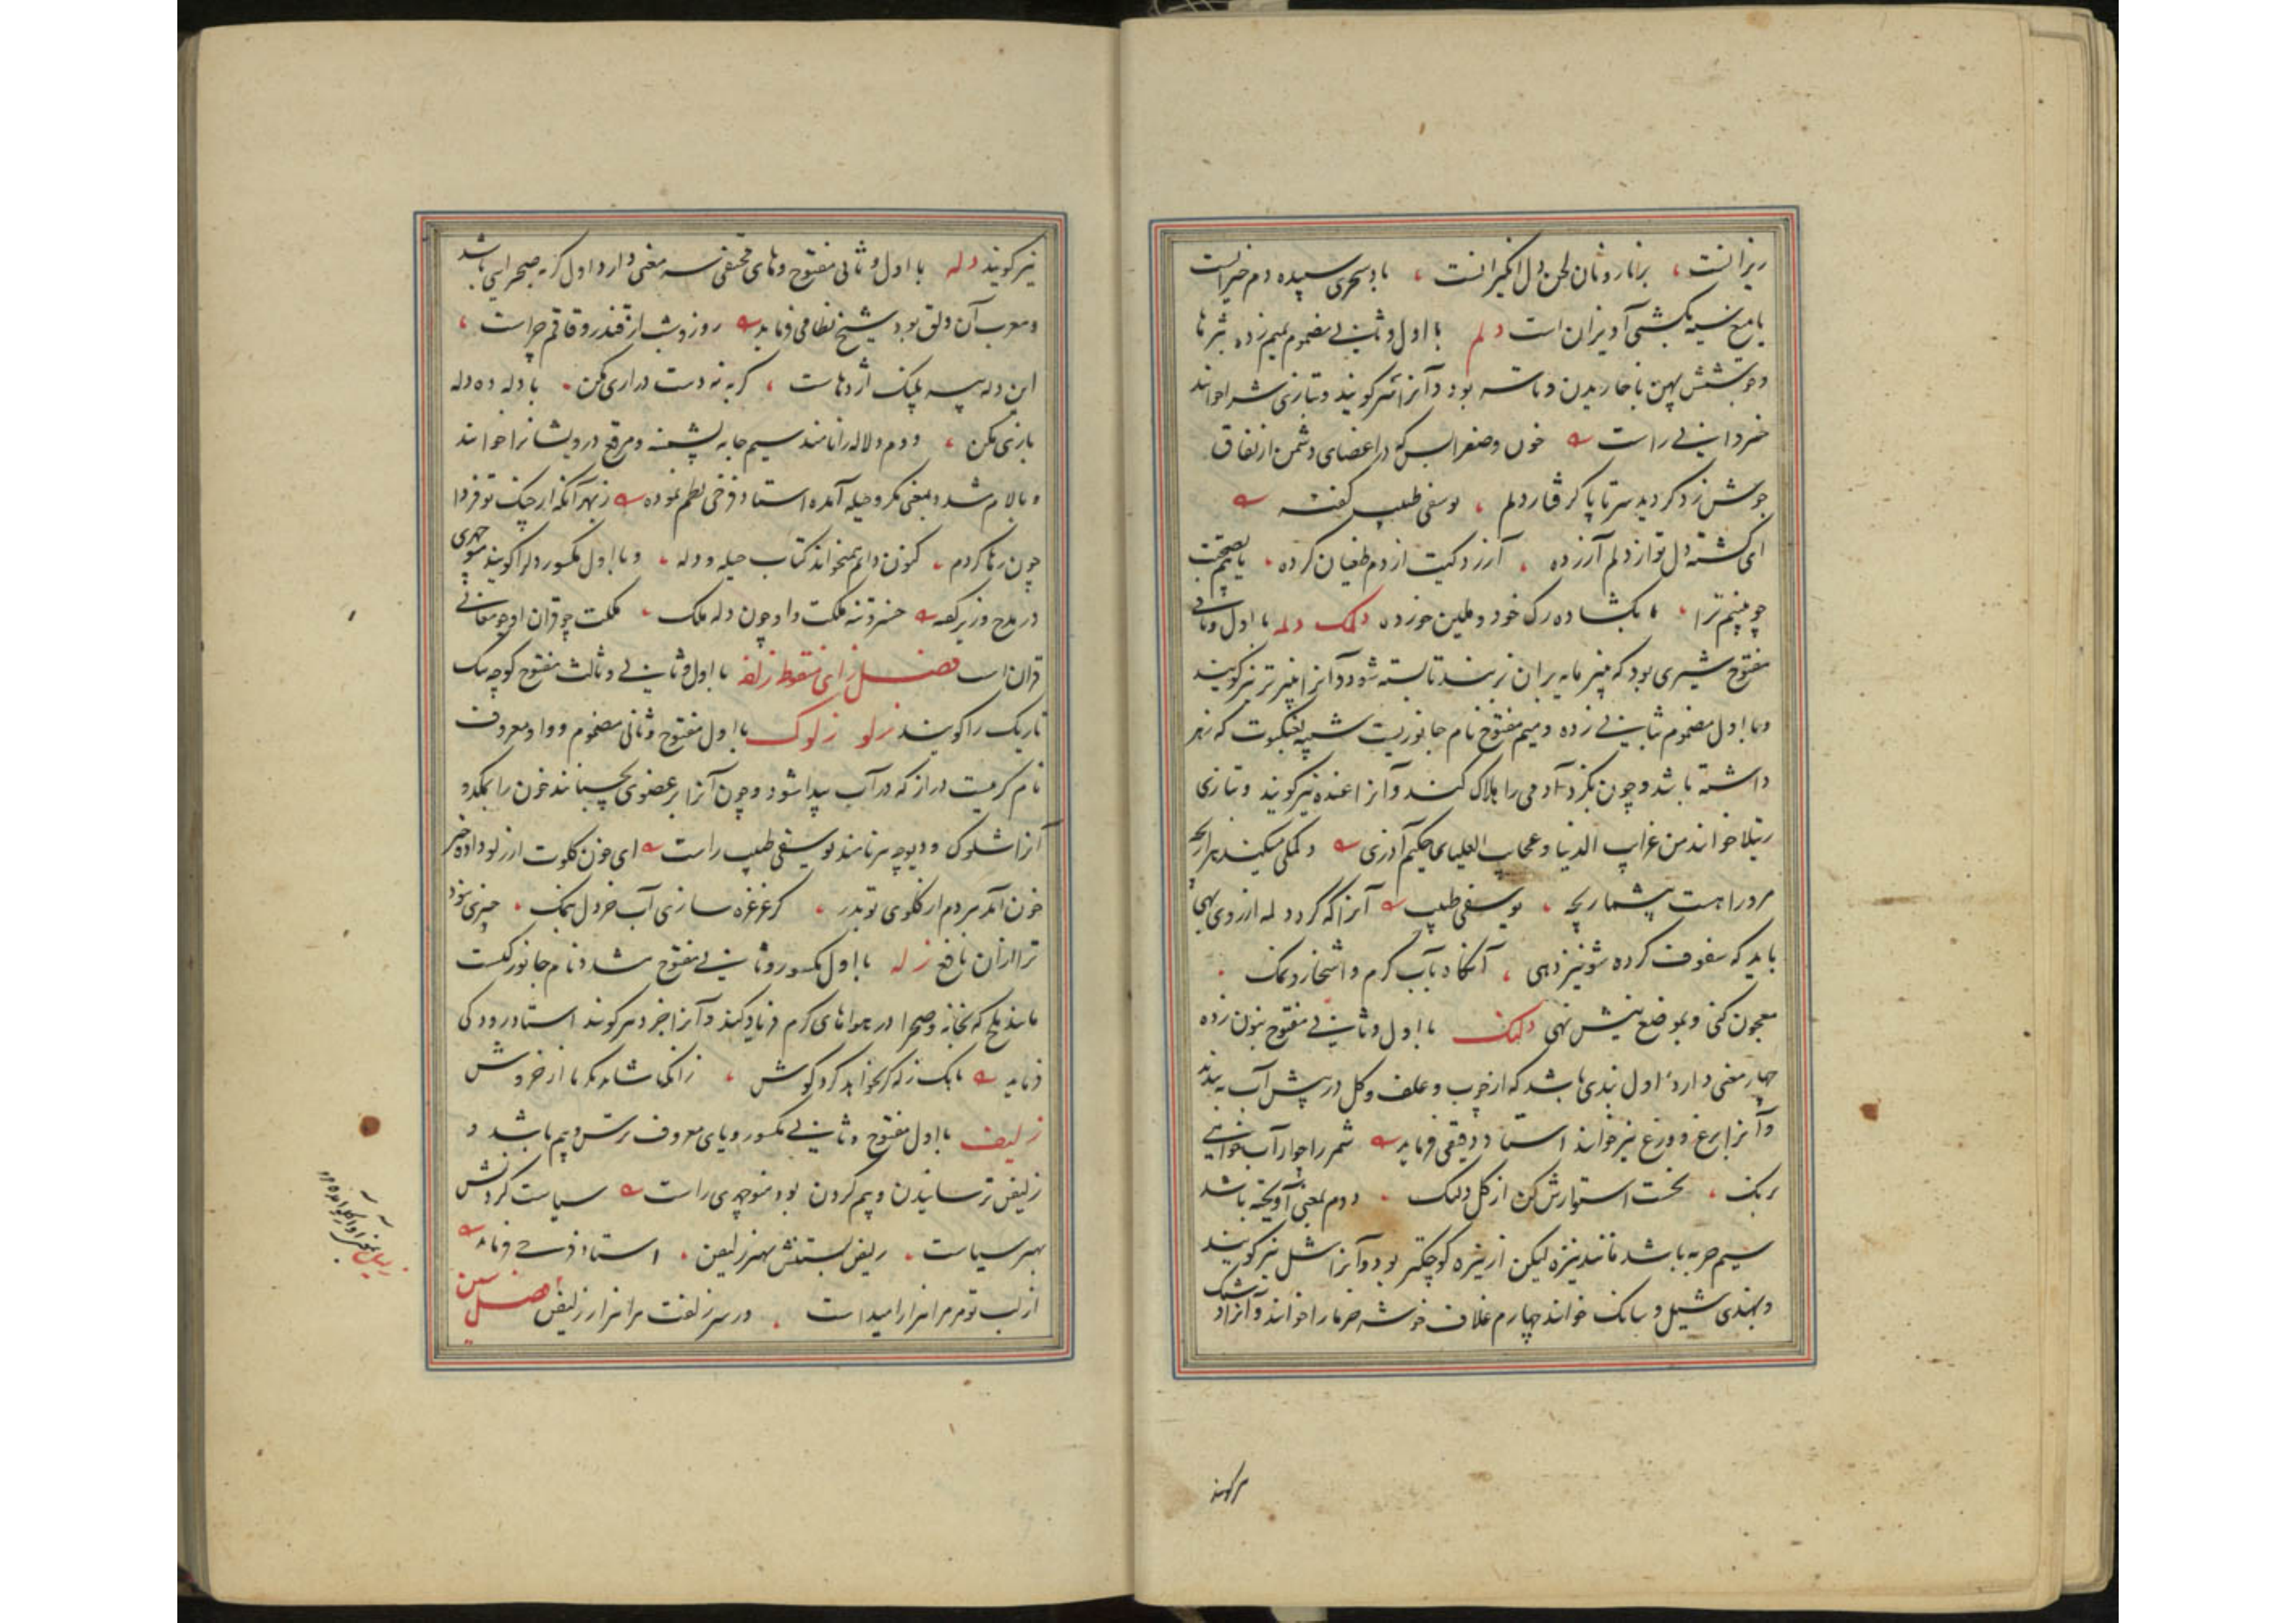 ریزانست ، برنار و نان لحن دل انگیزانست ، باد سحری سپیده دم خیزانست
یا میغ سیه بکشتی آویزان است دلم با اول و ثانی مضموم بمیم زده بثرها
و جوشش پهن با خاریدن و تاسه بود و آنرا نیر گویند و بتازی شرا خوانند
خسروانی راست خون و صفرا بس که در اعضای دشمن از نفاق
جوش زد گردید سر تا پا گرفتار دلم ، یوسفی طبیب گفته
ای گشته دل تو از دلم آزرده ، آرزد کیت از دم طغیان کرده ، یا بصحت
چو بینم ترا ، بگشاده رک خود و ملین خورده دلمک دلمه با اول و ثانی
مفتوح شیری بود که پنیر مایه بران زنند تا بسته شود و آنرا پنیر تر نیز گویند
و با اول مضموم بثانی زده و میم مفتوح نام جانوریست شبیه بعنکبوت که زهر
داشته باشد و چون بگزد آدمی را هلاک کند و آنرا غنده نیز گویند و بتازی
رتیلا خوانند من غرایب الدنیا و عجایب العلیای حکیم آذری دلمکی میکند هزار بچه
مرورا هست بیشمار بچه ، یوسفی طبیب آنرا که گزد دلمه از روی بهی
باید که سفوف کرده شونیز دهی ، آنگاه بآب گرم و اشخار و نمک .
معجون کنی و بموضع نیش نهی دلنک با اول و ثانی مفتوح بنون زده
چهار معنی دارد اول بندی باشد که از چوب و علف و گل در پیش آب بندند
و آنرا برغ و ورغ نیز خوانند استاد دقیقی فرماید شمر را چو از آب خواهی
بربک ، نخست استوارش کن از گل دلنک . دوم بمعنی آویخته باشد
سیم حربه باشد مانند نیزه لیکن از نیزه کوچکتر بود و آنرا شل نیز گویند
و بهندی شیل و سانک خوانند چهارم غلاف خوشه خرما را خوانند و آنرا دشنک
نیز گویند
نیز گویند دله با اول و ثانی مفتوح و های مختفی سه معنی دارد اول گربه صحرایی باشد
و معرب آن دلق بود شیخ نظامی فرماید روز و شب از قندز و قاقم چراست ،
این دله پیسه پلنک اژدهاست ، گربه نه دست درازی مکن . با دله ده دله
بازی مکن ، دوم دلاله را نامند سیم جامه پشمینه و مرقع درویشانرا خوانند
و با لام مشدد بمعنی مکر و حیله آمده استاد فرخی نظم نموده ز بهر آنکه از چنک تو فردا
چون رها گردم ، کنون دایم همیخوانم کتاب حیله و دله ، و با اول مکسور دل را گویند منوچهری
در مدح وزیر گفته خسرو تنه ملکت و او چون دله ملک ، ملکت چو قران او چو معانی
قران است فصل زای منقوط زلفه با اول و ثانی و ثالث مفتوح کوچه تنک
تاریک را گویند زلو زلوک با اول مفتوح و ثانی مضموم و واو معروف
نام کرمیست دراز که در آب پیدا شود و چون آنرا بر عضوی بچسبانند خون را بمکد و
آنرا شلوک و دیوچه نیز نامند یوسفی طبیب راست ای خون گلوت از زلو داده خبر
خون آمد هر دم از گلوی تو بدر ، گر غرغره سازی آب خردل بنمک ، چیزی نبود
ترا ازان نافع زله با اول مکسور و ثانی مفتوح مشدد نام جانورکیست
مانند ملخ که بخانه و صحرا در هواهای گرم فریاد کند و آنرا جزد نیز گویند استاد رودکی
فرماید بانک زله کر بخواهد کرد گوش ، زانکه ناساید کرما از خروش
زلیف با اول مفتوح و ثانی مکسور و یای معروف ترس و بیم باشد و
زلیفن ترسانیدن و بیم کردن بود منوچهری راست سیاست کردنش
بهتر سیاست ، زلیفن بستنش بهتر زلیفن . استاد فرخی فرماید
از لب تو مر مرا هزار امیداست . در سر زلفت مرا هزار زلیفن فصل سین